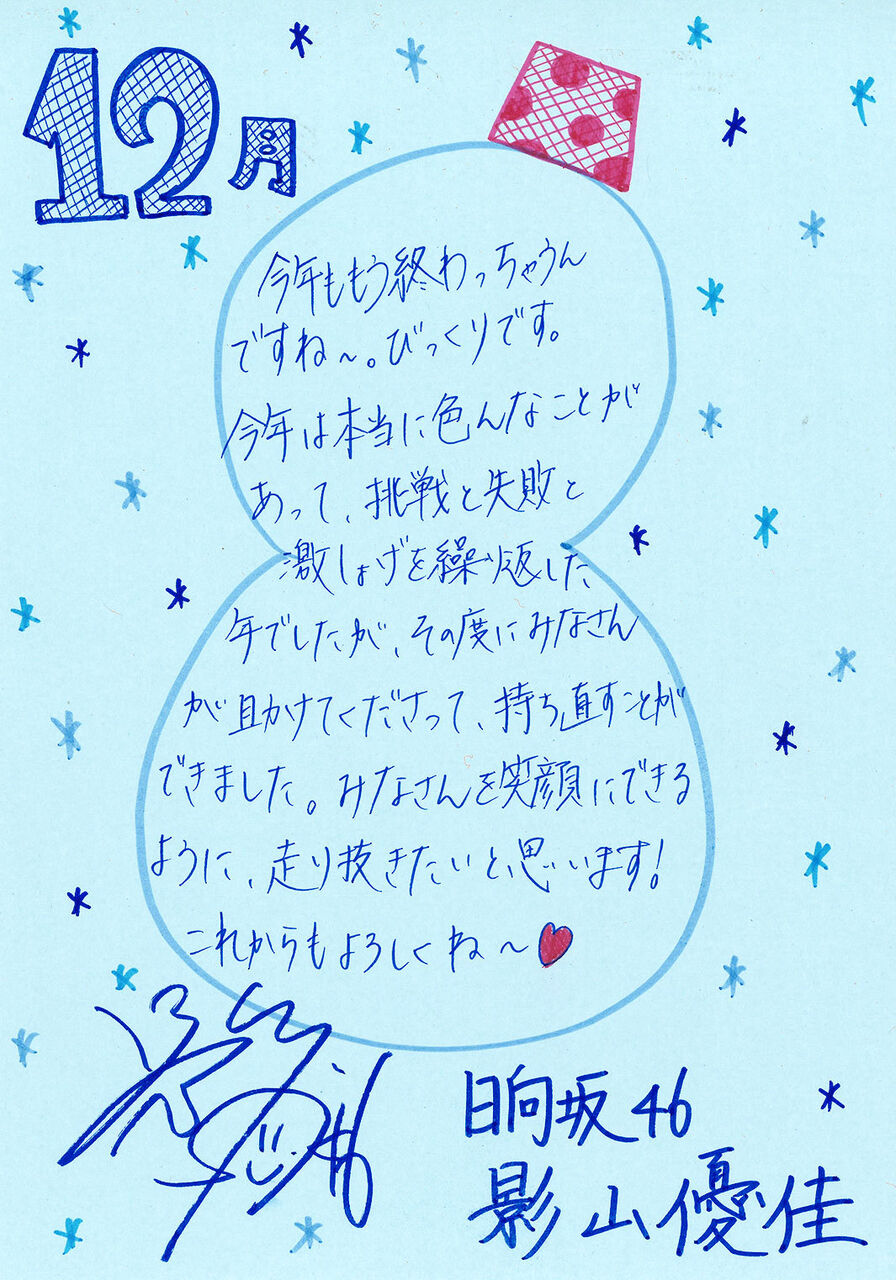 12月
今年ももう終わっちゃうん
ですね〜。びっくりです。
今年は本当に色んなことが
あって、挑戦と失敗と
激しょげを繰り返した
年でしたが、その度にみなさん
が助けてくださって、持ち直すことが
できました。みなさんを笑顔にできる
ように、走り抜きたいと思います!
これからもよろしくね〜♥
日向坂46
影山優佳